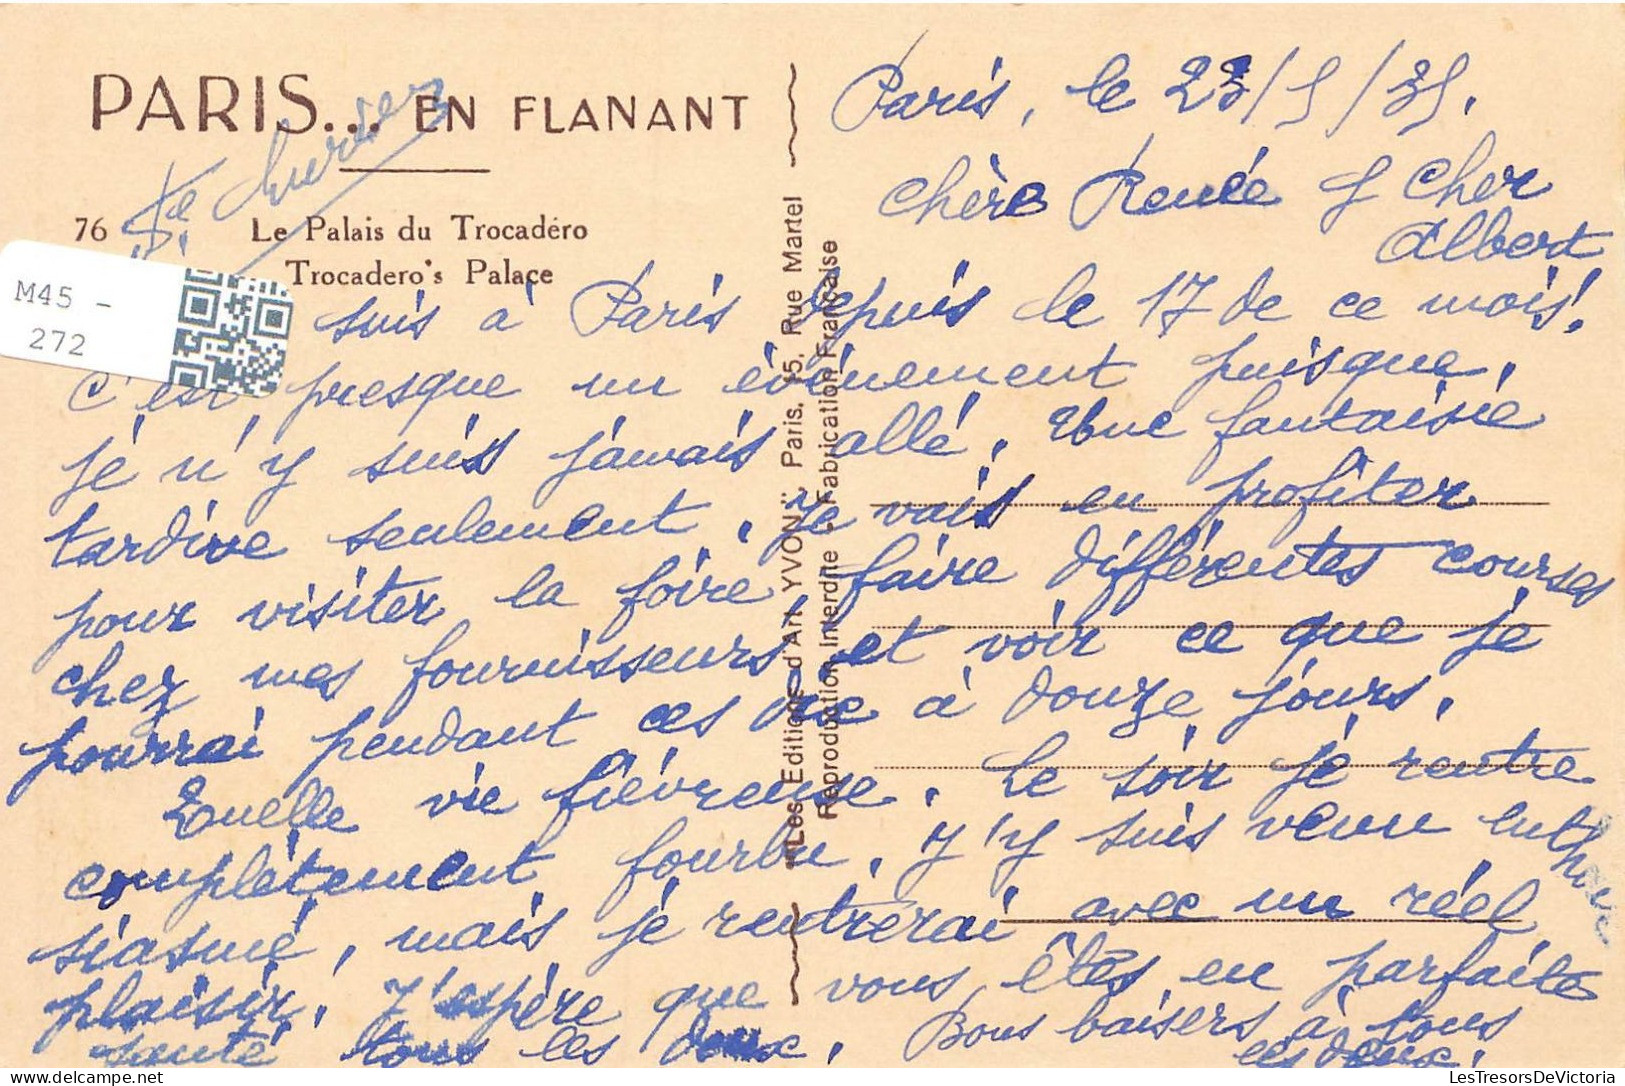 PARIS... EN FLANANT
76 Le Palais du Trocadéro
Trocadero's Palace
M45 -
272
"Les Editions d'Art YVON", Paris, 15, Rue Martel
Reproduction Interdite - Fabrication Française
Paris, le 23/5/35.
Chère Renée & Cher
Albert
suis à Paris depuis le 17 de ce mois.
C'est presque un événement puisque,
je n'y suis jamais allé. Une fantaisie
tardive seulement. Je vais en profiter
pour visiter la foire, faire différentes courses
chez mes fournisseurs, et voir ce que je
pourrai pendant ces dix à douze jours.
Quelle vie fiévreuse. Le soir je rentre
complètement fourbu. J'y suis venu enthou
siasmé, mais je rentrerai avec un réel
plaisir. J'espère que vous êtes en parfaite
santé tous les deux. Bons baisers à tous
les deux.
LesTresorsDeVictoria